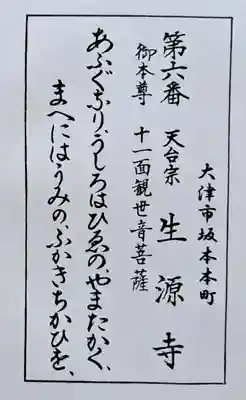 大津市坂本本町
第六番 天台宗 生源寺
御本尊 十一面観世音菩薩
あふぐなりうしろはひゑのやまたかく、
まへにはうみのふかきちかひを、